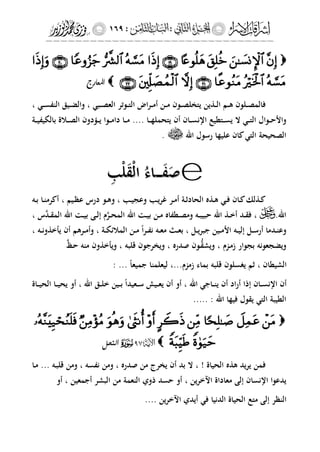 إشراقات الإسراء : الجزء الثاني : ١٦٩
﴿ إِنَّ ٱلْإِنسَـٰنَ خُلِقَ هَلُوعًا ۝١٩ إِذَا مَسَّهُ ٱلشَّرُّ جَزُوعًا ۝٢٠ وَإِذَا
مَسَّهُ ٱلْخَيْرُ مَنُوعًا ۝٢١ إِلَّا ٱلْمُصَلِّينَ ۝٢٢ ﴾ المعارج
فالمصلون هم الذين يتخلصون من أمراض التوتر العصبي ، والضيق النفسي ،
والأحوال التي لا يستطيع الإنسان أن يتحملها ... ما داموا يؤدون الصلاة بالكيفية
الصحيحة التي كان عليها رسول الله .
صَفَاءُ الْقَلْبِ
كذلك كان في هذه الحادثة أمر غريب وعجيب ، وهو درس عظيم ، أكرمنا به
الله ، فقد أخذ الله حبيبه ومصطفاه من بيت الله المحرَّم إلى بيت الله المقدَّس ،
وعندما أرسل إليه الأمين جبريل ، بعث معه نفراً من الملائكة ، وأمرهم أن يأخذونه ،
ويضجعونه بجوار زمزم ، ويشقُّون صدره ، ويخرجون قلبه ، ويأخذون منه حظَّ
الشيطان ، ثم يغسلون قلبه بماء زمزم...، ليعلمنا جميعاً ... :
أن الإنسان إذا أراد أن يناجي الله ، أو أن يعيش سعيداً بين خلق الله ، أو يحيا الحياة
الطيبة التي يقول فيها الله : .....
﴿ مَنْ عَمِلَ صَـٰلِحًا مِّن ذَكَرٍ أَوْ أُنثَىٰ وَهُوَ مُؤْمِنٌ فَلَنُحْيِيَنَّهُۥ
حَيَوٰةً طَيِّبَةً ﴾ الآية ٩٧ النحل
فمن يريد هذه الحياة ! ، لا بد أن يخرج من صدره ، ومن نفسه ، ومن قلبه ... ما
يدعوا الإنسان إلى معاداة الآخرين ، أو حسد ذوي النعمة من البشر أجمعين ، أو
النظر إلى متع الحياة الدنيا في أيدي الآخرين ....